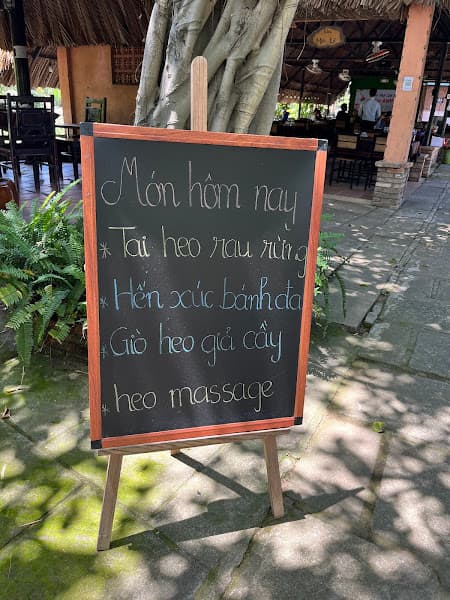 Món hôm nay
* Tai heo rau rừng
* Hến xúc bánh đa
* Giò heo giả cầy
* heo massage